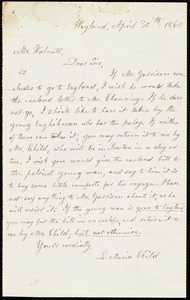 Wayland, April 30th 1865
Mr. Wolcutt,
Dear Sir,
If Mr. Garrison con-
cludes to go to England, I wish he would take
the enclosed letter to Mr. Channing. If he does
not go, I should like to have it taken by the
young Englishman who has the palsy. If neither
of them can take it, you may return it to me by
Mr. Child, who will be in Boston in a day or
two. I wish you would give the enclosed bill to
the palsied young man, and say to him it is
to buy some little comforts for his voyage. Please
not say anything to Mr. Garrison about it; as he
will resist it. If the young man is gone to England
you may put the bill in an envelope, and return it to
me by Mr. Child; but not otherwise.
Yours cordially,
L. Maria Child